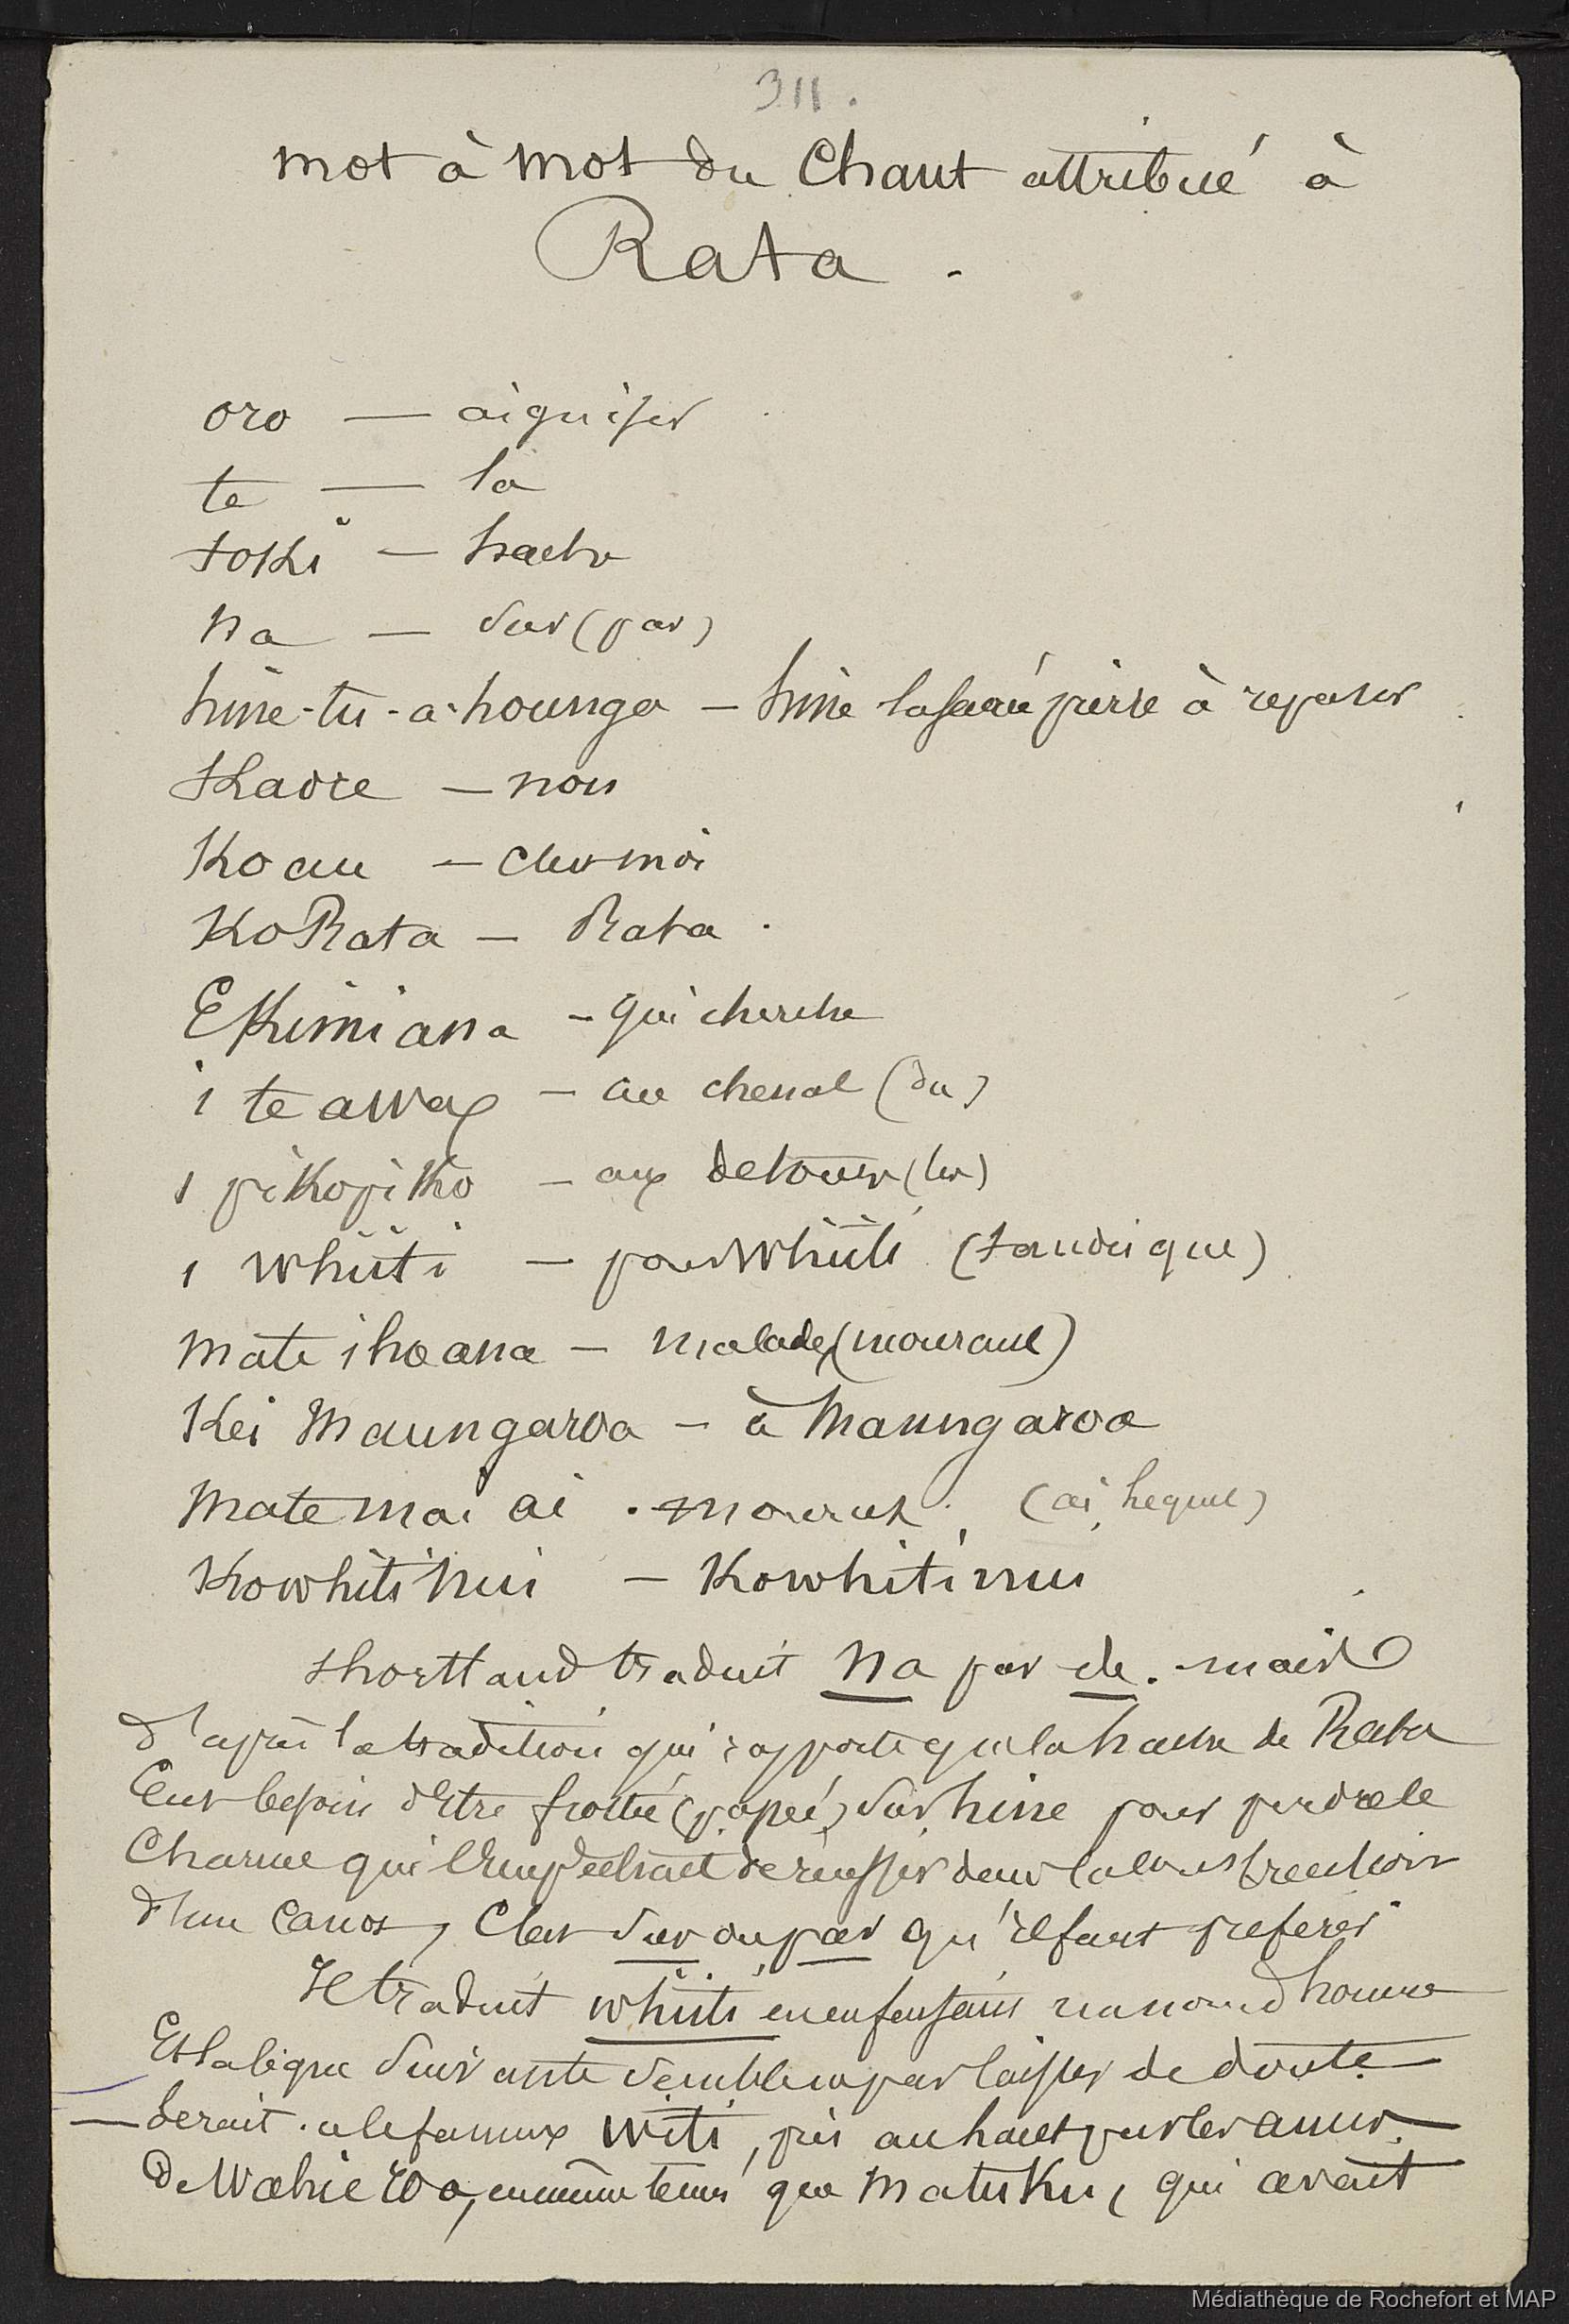 311.
Mot à mot du Chant attribué à
Rata.
oro — aiguiser
te — la
toki — hache
na — sur (par)
hine-tu-a-hounga — hine la sacré pierre à repasser
Kaore — non
Ko au — c'est moi
Ko Rata — Rata.
E Kimi ana — qui cherche
i te awa — au chenal (du)
i pikopiko — aux detours (les)
i Whiti — pour Whiti (tandis que)
mate ihoana — malade, (mourant)
Kei Maungaroa — à Maungaroa
Mate mai ai . mourut. (ai, lequel)
Kowhitinui — Kowhitinui
Shortland traduit na par de. mais
d'après la tradition qui rapporte que la hache de Rata
eut besoin d'être frottée (papéé) sur hine pour perdre le
charme qui l'empêchait de reussir dans la construction
d'un canot, c'est sur ou par qu'il faut preferer
Il traduit whiti en en faisant un nom d'homme
Et la ligne suivante semble ne pas laisser de doute.
— Serait-ce le fameux Witi, pris au hauet par les amis
De Wahieroa, en même tems que Matuku, qui avait
Médiathèque de Rochefort et MAP